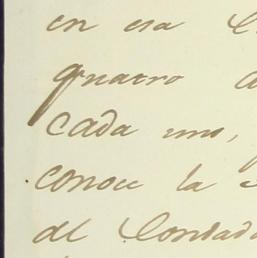 en esa
quatro
cada uno,
conoce la
del Contad